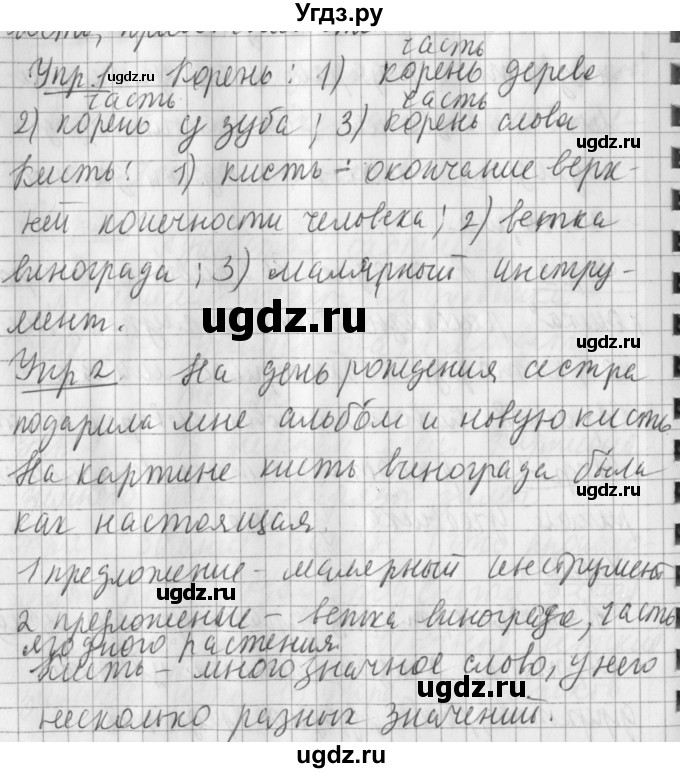 Угдз.ру
часть
Упр.1 Корень: 1) корень дерева
часть часть
2) корень у зуба; 3) корень слова
Кисть: 1) кисть - окончание верх-
ней конечности человека; 2) ветка
винограда; 3) малярный инстру-
мент.
Упр 2. На день рождения сестра
подарила мне альбом и новую кисть
На картине кисть винограда была
как настоящая.
1 предложение - малярный инструмент
2 преложение - ветка винограда, часть
ягодного растения
Кисть - многозначное слово, у него
несколько разных значений.
ugdz.ru
ugdz.ru
ugdz.ru
ugdz.ru
ugdz.ru
ugdz.ru
ugdz.ru
ugdz.ru